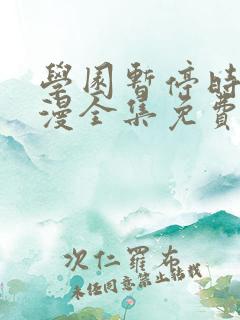 學園暫停時
漫全集免費
次仁羅布
未经同意禁止转载